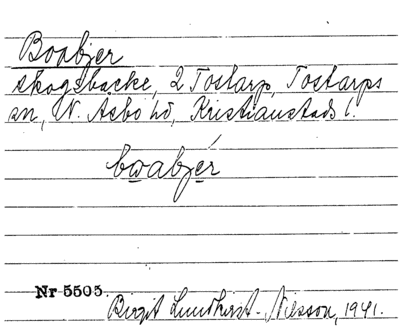 Boabjer
skogsbacke, 2 Tostarp, Tostarps
sn, N. Åsbo hd, Kristianstads l.
bwabjér
Nr 5505.
Birgit Lundkvist-Nilsson, 1941.